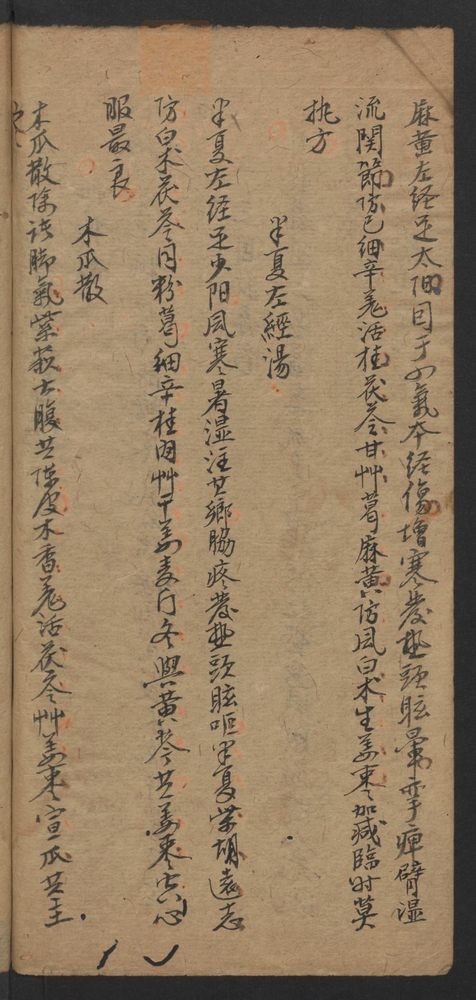 麻黄左经足太阳因于四氣本经傷增寒发热頭眩暈挛痹臂湿
流関節防己细辛羌活桂茯苓甘艸葛麻黄防风白术生姜枣加减臨时莫
执方
半夏左經湯
半夏左经足少阳风寒暑湿注其鄉脇疼发热頭眩呕半夏柴胡遠志
防白术茯苓同粉葛细辛桂肉艸干姜麦门冬與黄芩共姜枣空心
服最良
木瓜散
木瓜散除诸脚氣紫蘇大腹共陈皮木香羌活茯苓艸姜枣宣瓜共主